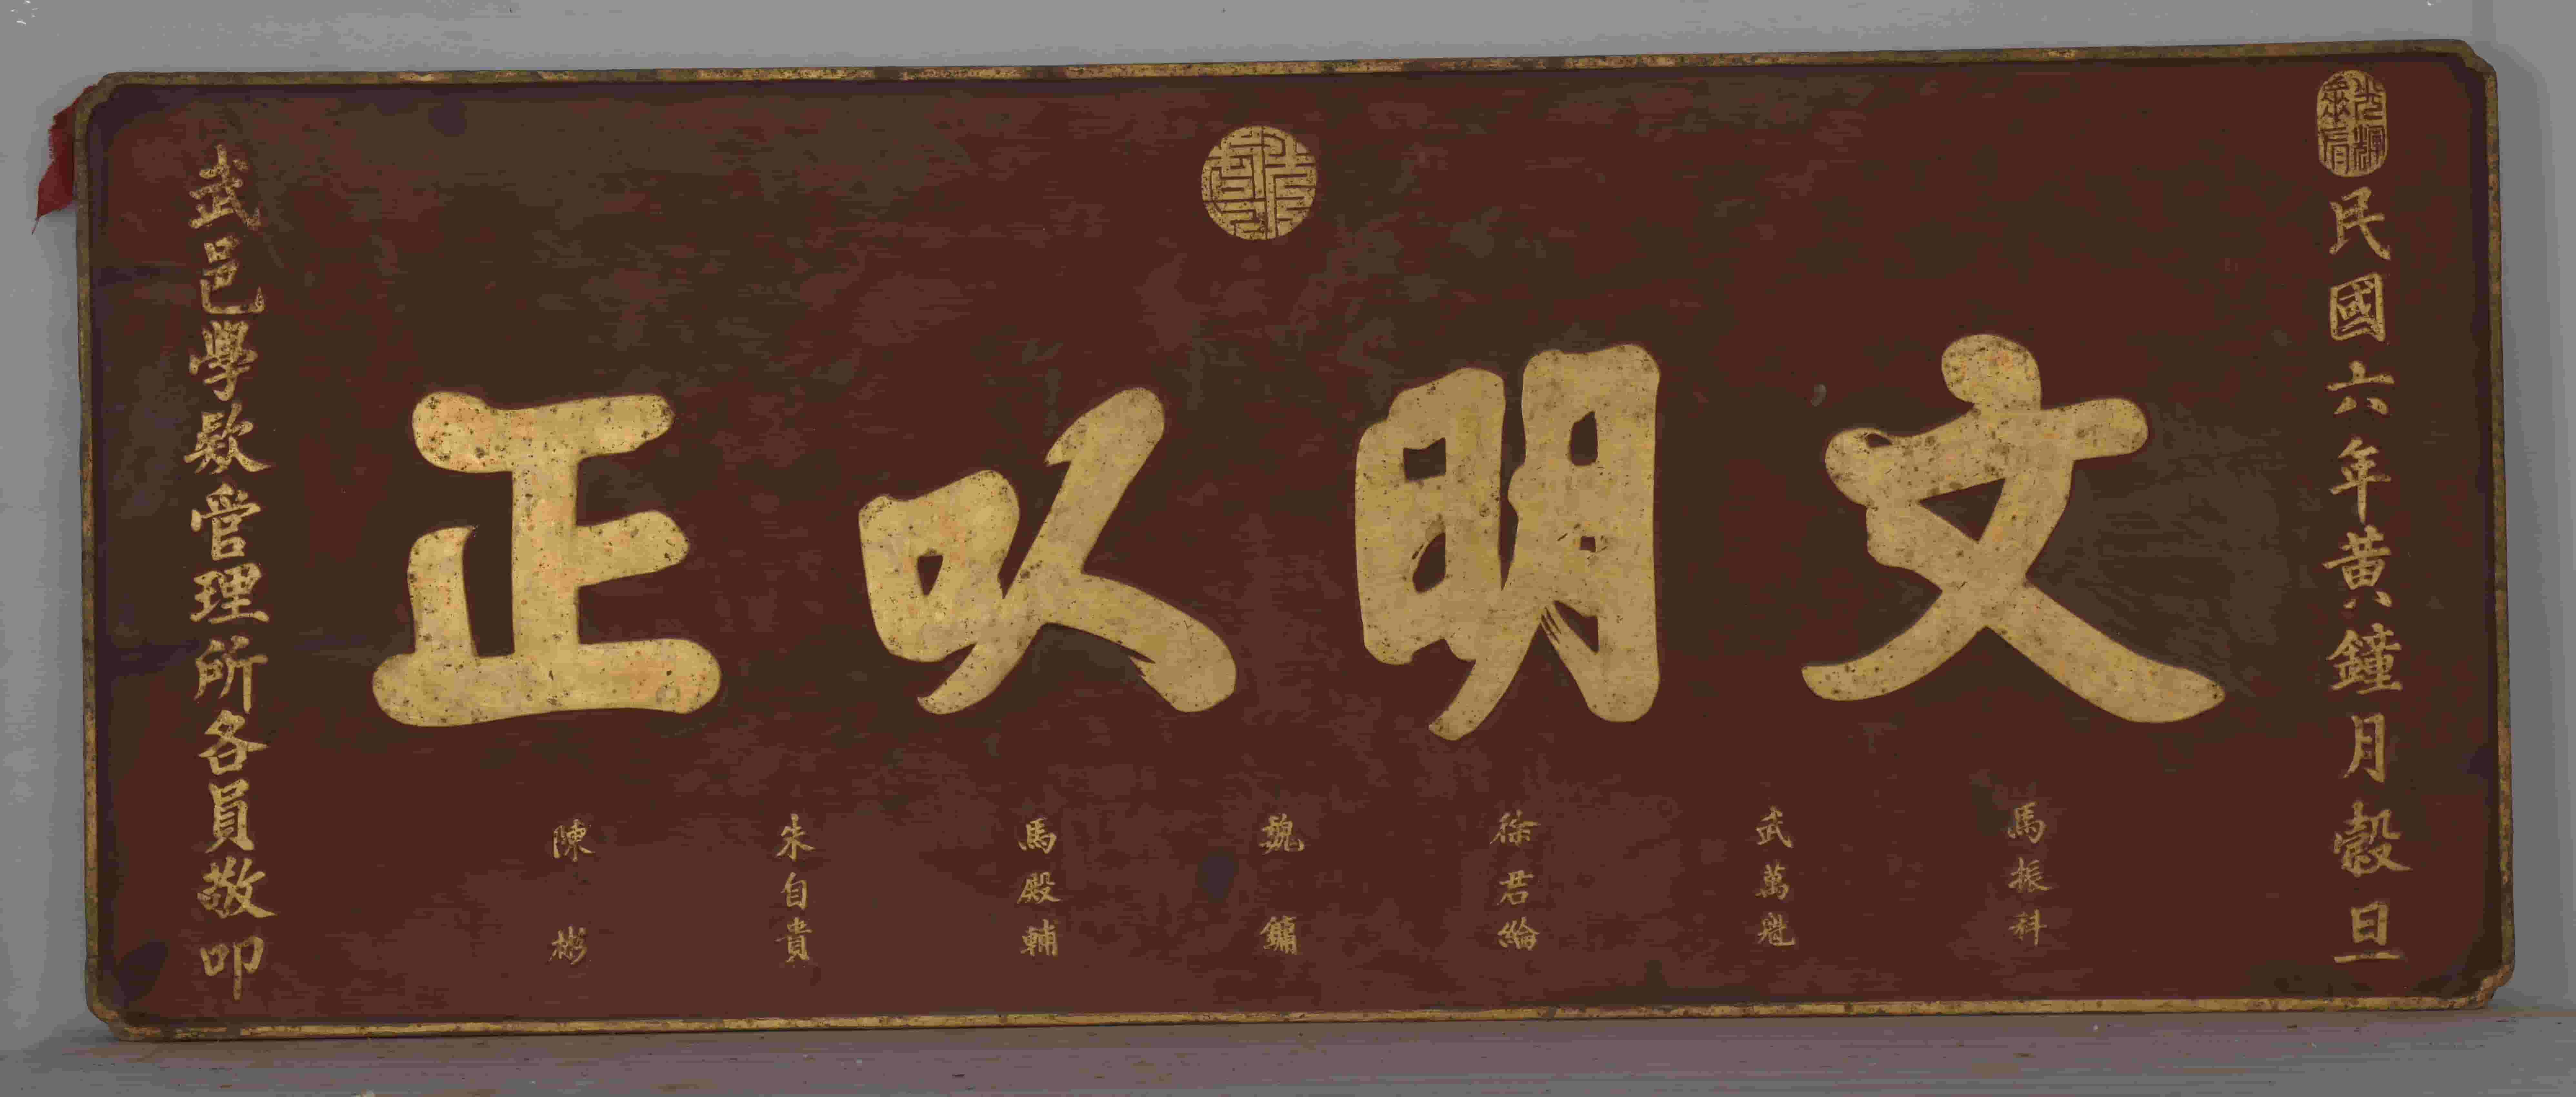 民國六年黃鐘月穀旦
文明以正
馬振科
武萬魁
徐君綸
魏鏞
馬殿輔
朱自貴
陳彬
武邑學欵管理所各員敬叩